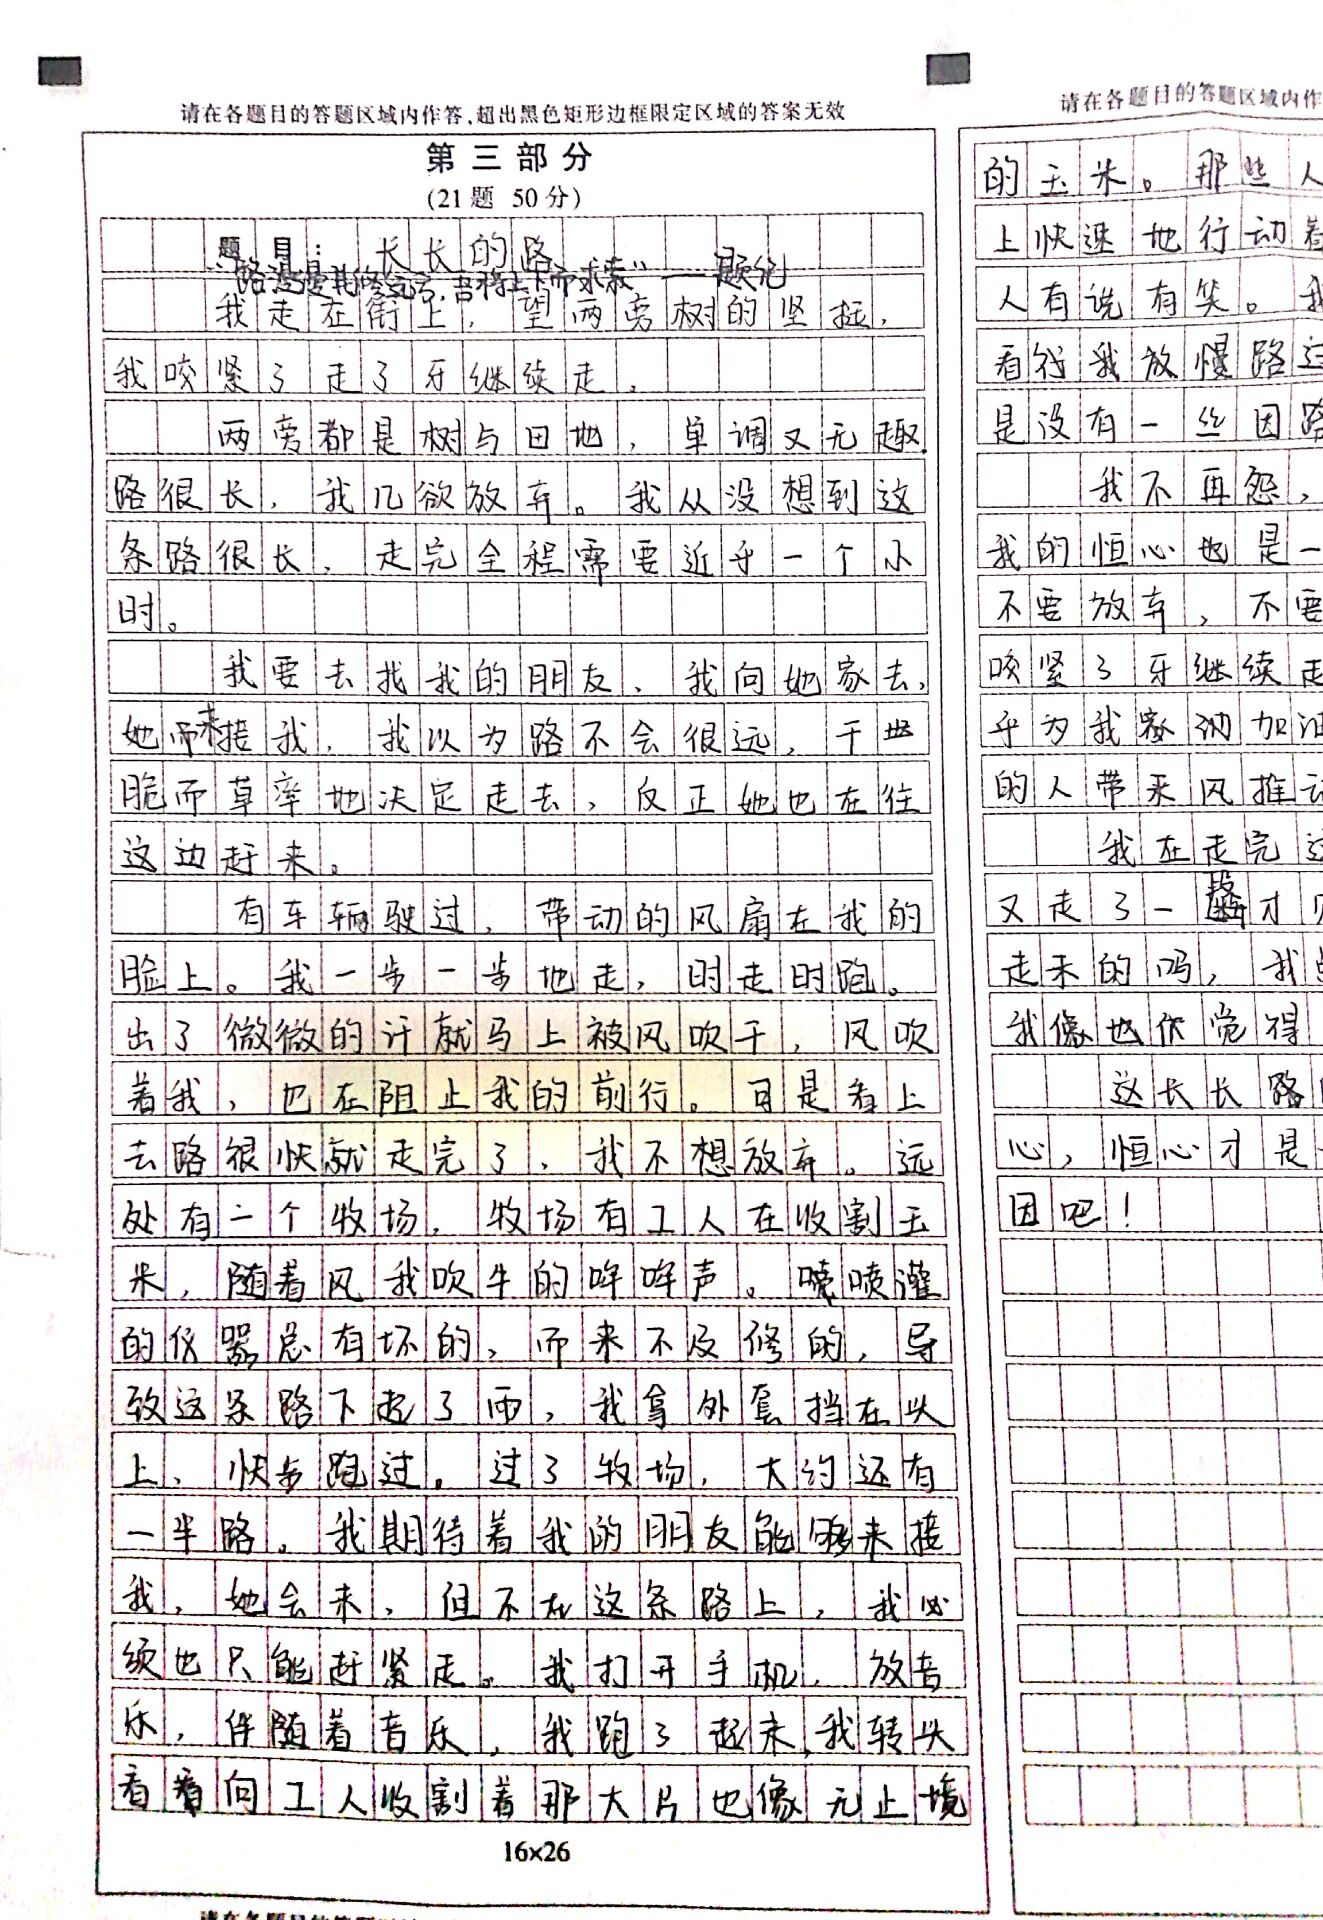 请在各题目的答题区域内作答,超出黑色矩形边框限定区域的答案无效
第三部分
(21题 50分)
题目: 长长的路
“路漫漫其修远兮,吾将上下而求索”——题记
我走在街上,望两旁树的坚挺,
我咬紧了走了牙继续走。
两旁都是树与田地,单调又无趣.
路很长,我几欲放弃。我从没想到这
条路很长,走完全程需要近乎一个小
时。
我要去找我的朋友,我向她家去,
她而来接我,我以为路不会很远,干
脆而草率地决定走去,反正她也在往
这边赶来。
有车辆驶过,带动的风扇在我的
脸上。我一步一步地走,时走时跑。
出了微微的汗就马上被风吹干,风吹
着我,也在阻止我的前行。可是看上
去路很快就走完了,我不想放弃。远
处有一个牧场,牧场有工人在收割玉
米,随着风我吹牛的哞哞声。喷灌
的仪器总有坏的,而来不及修的,导
致这条路下起了雨,我拿外套挡在头
上,快步跑过。过了牧场,大约还有
一半路。我期待着我的朋友能够来接
我,她会来,但不在这条路上,我必
须也只能赶紧走。我打开手机,放音
乐,伴随着音乐,我跑了起来,我转头
看着向工人收割着那大片也像无止境
16×26
请在各题目的答题区域内作
的玉米。那些人
上快速地行动着
人有说有笑。我
看待我放慢路过
是没有一丝因路
我不再怨,
我的恒心也是一
不要放弃,不要
咬紧了牙继续走
乎为我呐加油
的人带来风推动
我在走完这
又走了一段才
走来的吗,我
我像也依觉得
这长长路
心,恒心才是
因吧!